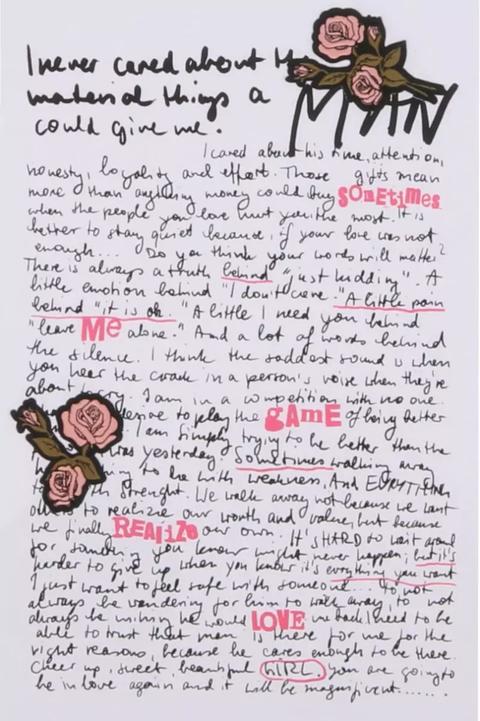 I never cared about the
material things a MAN
could give me.
I cared about his time, attention,
honesty, loyality and effort. Those gifts mean
more than anything money could buy SOMETIMES
when the people you love hurt you the most. It is
better to stay quiet because, if your love was not
enough... Do you think your words will matter?
There is always a truth behind "just kidding". A
little emotion behind "I don't care. "A little pain
behind "it is ok. "A little I need you behind
"leave Me alone." And a lot of words behind
the silence. I think the saddest sound is when
you hear the crack in a person's voice when they're
about I am in a competition with no one.
desire to play the gAME of being better
I am simply trying to be better than the
was yesterday. Sometimes walking away
to do with weakness. And EVERYTHING
strenght. We walk away not because we want
to realize our worth and value, but because
we finally REALIZE our own. It's HARD to wait around
for something you know might never happen; but it's
harder to give up when you know it's evrything you want
I just want to feel safe with someone... to not
always be wandering for him to walk away, to not
always be wishing he would LOVE me back. I need to be
able to trust that man is there for me for the
right reasons, because he cares enough to be there.
Cheer up, sweet, beautiful GIRL. you are going to
be in love again and it will be magnificent......